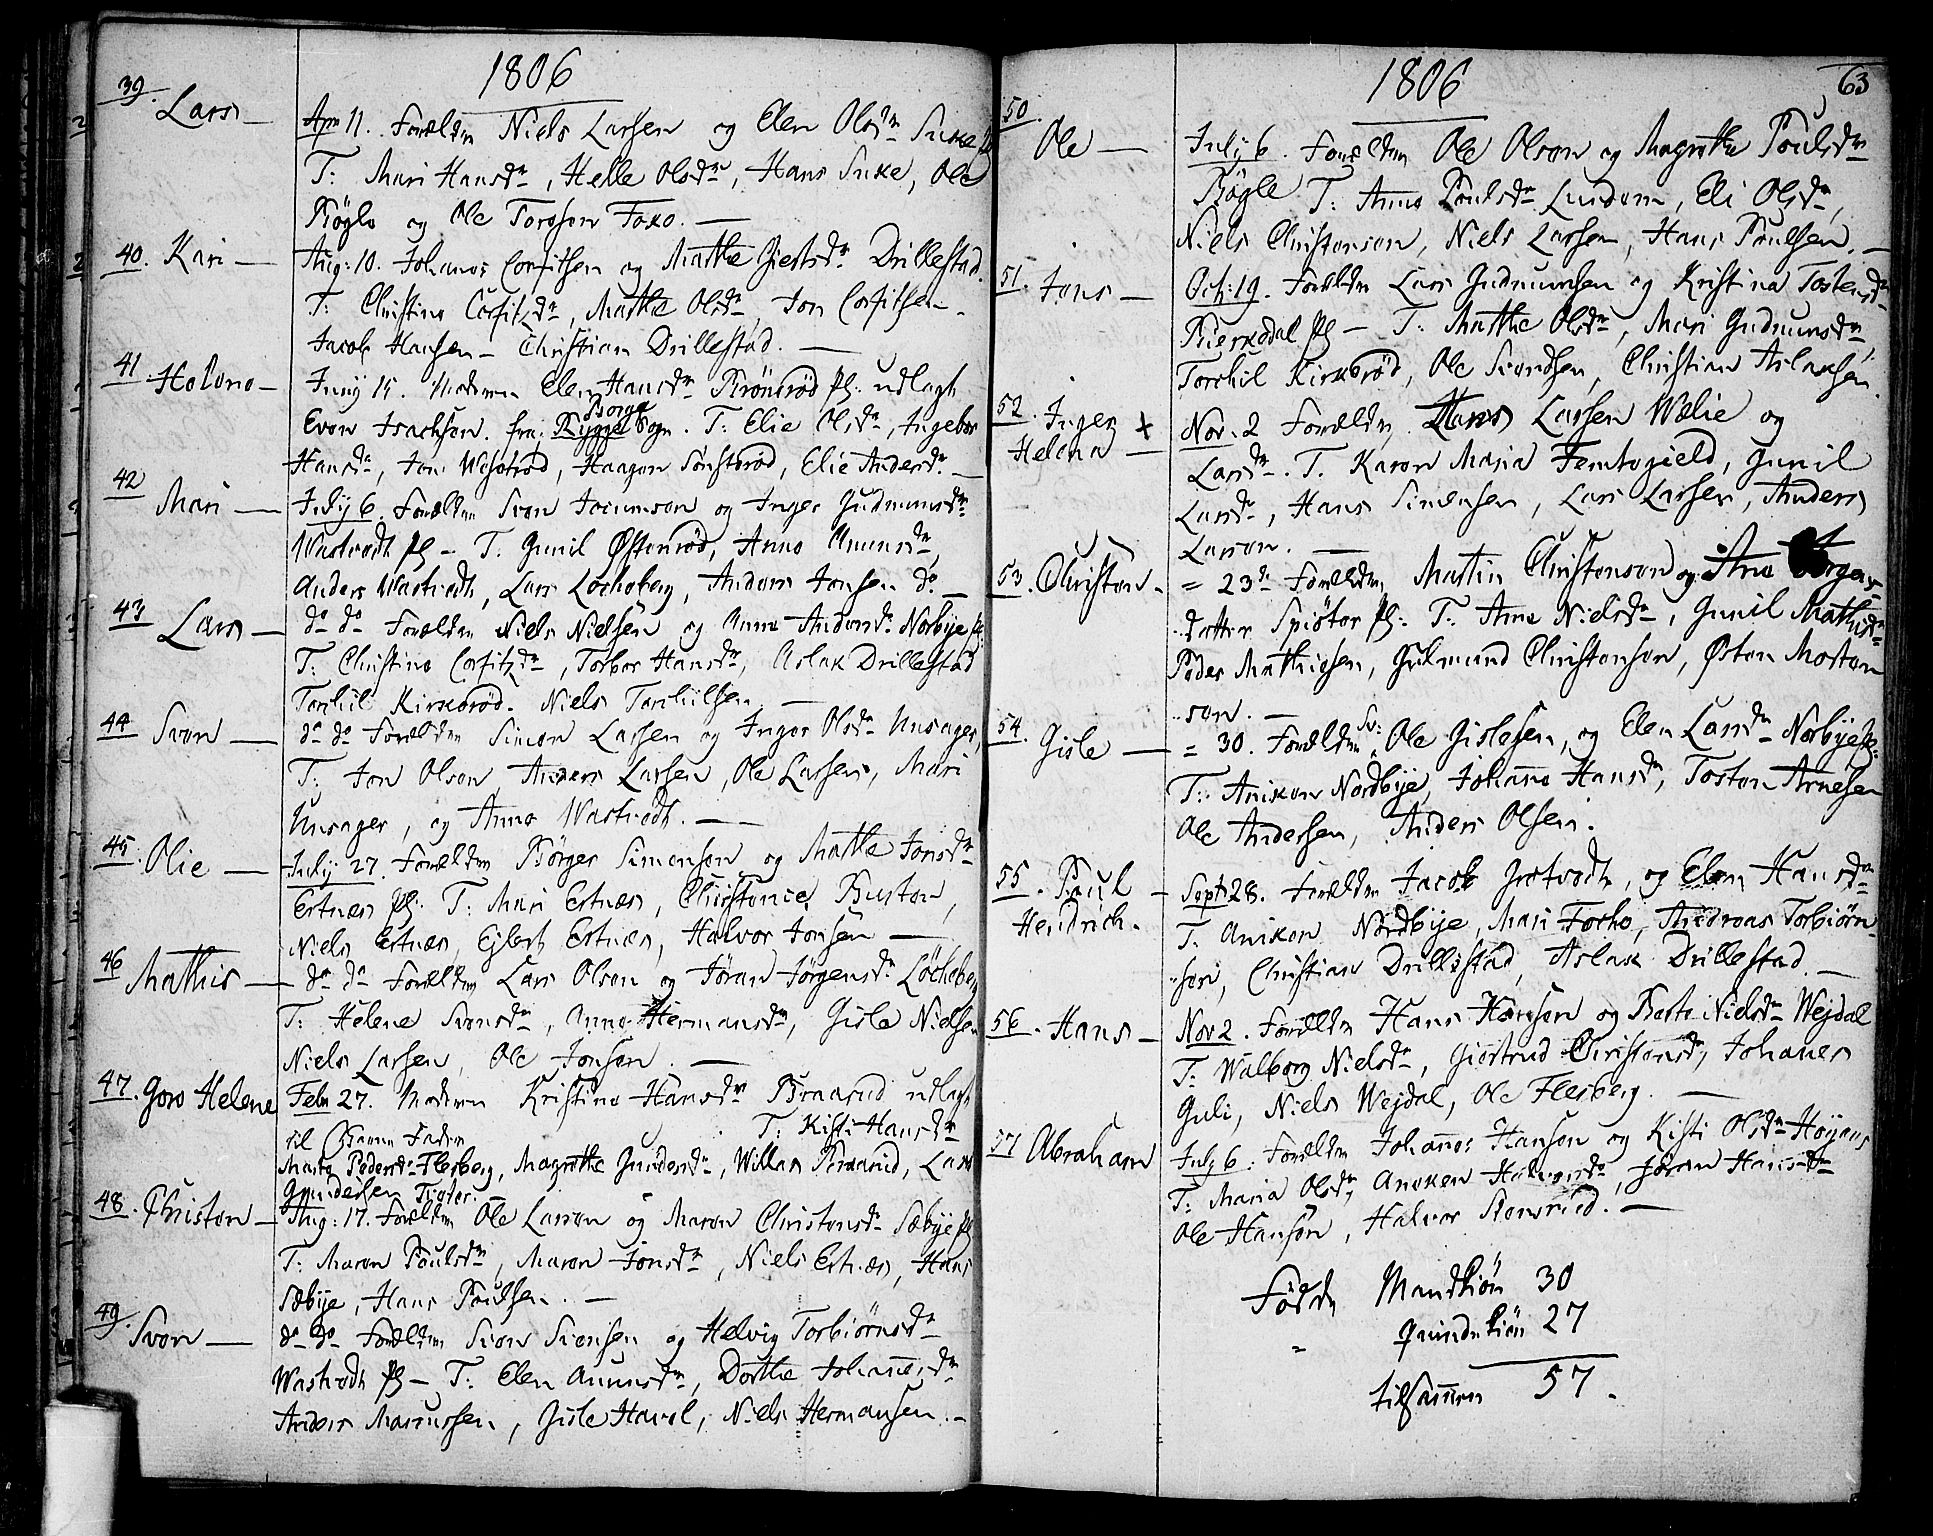 1806
39. Lars — Apr 11. Forældrn Niels Larsen og Elen Olsdn Suxe
T: Mari Hansdn, Helle Olsdn, Hans Suxe, Ole
Bögle og Ole Torgsen Foxo. —
40. Kari — Aug: 10. Johanes Corfitsen og Mathe Giertsdn Drillestad.
T: Christine Corfitzdn, Mathe Olsdn, Jon Corfitsen —
Jacob Hansen — Christian Drillestad. —
41. Helene — Juny 15. Moderen Elen Hansdn Brönsröd Pl: udlagt
Borge
Even Isachsen. fra: Rygge Sogn. T: Elie Olsdn, Ingebor
Hansdn, Jon Weströd, Haagen Sönsteröd, Elie Andersdn. —
42 Mari — July 6. Forældrn Sven Joeumson og Inger Gudmunsdn
Wastvedt Pl — T. Gunil Östenröd, Anne Amunsdn,
Anders Wastvedt, Lars Löcheberg, Anders Jonsen do. —
43 Lars — do do Forældrn Niels Nielsen og Anne Andersdn Norbije pl:
T: Christine Corfitzdn, Torbor Hansdn, Aslak Drillestad
Torkil Kirkeröd. Niels Torkilsen —
44 Sven — do do Forældrn Simen Larsen og Inger Olsdn Unsager,
T: Jon Olsen Anders Larsen, Ole Larsen, Mari
Unsager, og Anne Wastvedt. —
45. Olie — July 27. Forældrn Börger Simensen og Mathe Jonsdn
Ertnæs Pl: T: Mari Ertnæs, Christence Busten,
Niels Ertnæs, Ejlert Ertnæs, Halvor Jonsen —
46 Mathis — do do Forældrn Lars Olsen og Jöran Jörgensdn Löcheberg
T: Helene Svensdn, Anne Hermansdn, Gisle Nielsen
Niels Larsen, Ole Jonsen. —
47. Goro Helene Febr 27. Moderen Kristine Hansdn Braarud udlagt
til Barne Fader T: Kisti Hansdn
Marte Pedersdn Flesberg, Magrethe Gundersdn, Willas Braarud, Lars
Gundersen Tveter.
48. Christen — Aug: 17. Forældrn Ole Larsen og Maren Christensdn Sæbije pl
T: Maren Poulsdn, Maren Jonsdn, Niels Ertnæs, Hans
Sæbije, Hans Poulsen. —
49. Sven — do do Forældrn Sven Svensen og Helvig Torbiörnsdn
Wastvedt Pl — T: Elen Amunsdn, Dorthe Johanesdn
Anders Marcussen, Gisle Havel, Niels Hermansen. —
1806 63
50. Ole — July 6. Forældrn Ole Olsen og Magrethe Poulsdn
Bögle T: Anne Poulsdn Lundem, Eli Olsdn,
Niels Christensen, Niels Larsen, Hans Poulsen. —
51. Jens — Oct: 19. Forældrn Lars Gudmunsen og Kristina Tostensdn
Bierkedal Pl — T: Mathe Olsdn, Mari Gudmunsdn
Torchil Kirkeröd, Ole Svendsen, Christian Aslaksen.
52. Inger + Nov. 2 Forældrn Hans Larsen Wælie og
Helena — Larsdn. T. Karen Maria Femtegield, Gunil
Larsdn, Hans Simensen, Lars Larsen, Anders
Larsen. —
53. Christen. — = 23de Forældrn Martin Christensen og Ane Börges
datter Spiötor Pl: T: Ane Nielsdn, Gunil Mathisdn
Peder Mathiesen, Gulmund Christensen, Østen Morten
sen. —
54. Gisle — = 30. Forældrn Sv: Ole Gislesen, og Elen Larsdn Norbije pl:
T: Aniken Nordbije, Johanne Hansdn, Tosten Arnesen
Ole Andersen, Anders Olsen.
55. Paul — Sept 28. Forældrn Jacob Grotvedt, og Elen Hansdn
Hendrich. T. Aniken Nordbije, Mari Forko, Andreas Torbiörn
sen, Christian Drillestad, Aslak Drillestad. —
56. Hans — Nov 2. Forældrn Hans Hansen og Berte Nielsdn Wejdal
T: Walborg Nielsdn, Giertrud Christensdn, Johanes
Guli, Niels Wejdal, Ole Flesberg. —
57 Abraham July 6. Forældrn Johannes Hansen og Kisti Olsdn Höyens
T: Maria Olsdn, Aneken Halvorsdn, Jöran Hansdn
Ole Hansen, Halvor Stensried. —
Födde Mandkiön 30
" Qvindekiön 27
tilsammen 57.